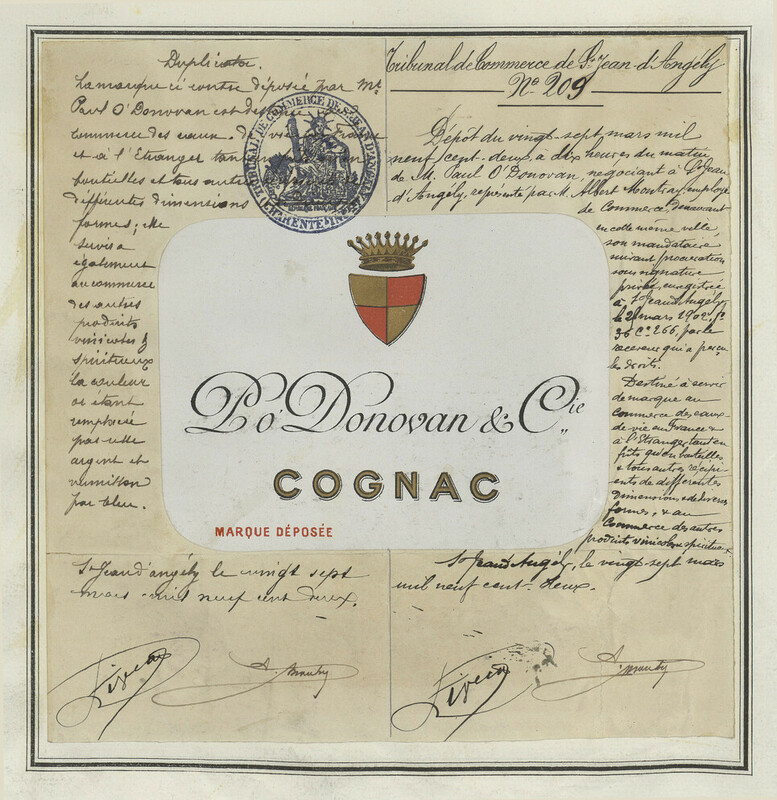 Duplicata.
La marque ci contre déposée par Mr
Paul O'Donovan est
Commerce des eaux de
et à l'Etranger tan
bouteilles et tous autre
différentes dimensions
formes; elle
servira
également
au commerce
des autres
produits
vinicoles &
spiritueux
la couleur
or étant
remplacée
par
argent et
vermillon
par bleu.
St Jean d'angély le vingt sept
mars mil neuf cent deux.
TRIBUNAL DE COMMERCE DE St JEAN D'ANGELY
(CHARENTE-INFRE)
Tribunal de Commerce de St Jean-d'Angély
No 209
Dépôt du vingt-sept mars mil
neuf cent-deux, à dix heures du matin
de M. Paul O'Donovan, négociant à St Jean
d'Angély, représenté par M. Albert employé
de Commerce, demeurant
en cette même ville,
son mandataire
suivant procuration
sous signature
privée, enregistrée
à St Jean d'Angély
le mars 1902, fo
36 Co 266, par le
receveur qui a perçu
les droits.
Destiné à servir
de marque au
Commerce des eaux-
de-vie en France &
à l'Etranger tant en
fûts qu'en bouteilles
& tous autres récipi-
ents de différentes
dimensions & de diverses
formes, & au
Commerce des autres
produits vinicoles & spiritueux
St Jean d'Angély, le vingt-sept mars
mil neuf cent-deux.
P. O'Donovan & Cie
COGNAC
MARQUE DÉPOSÉE